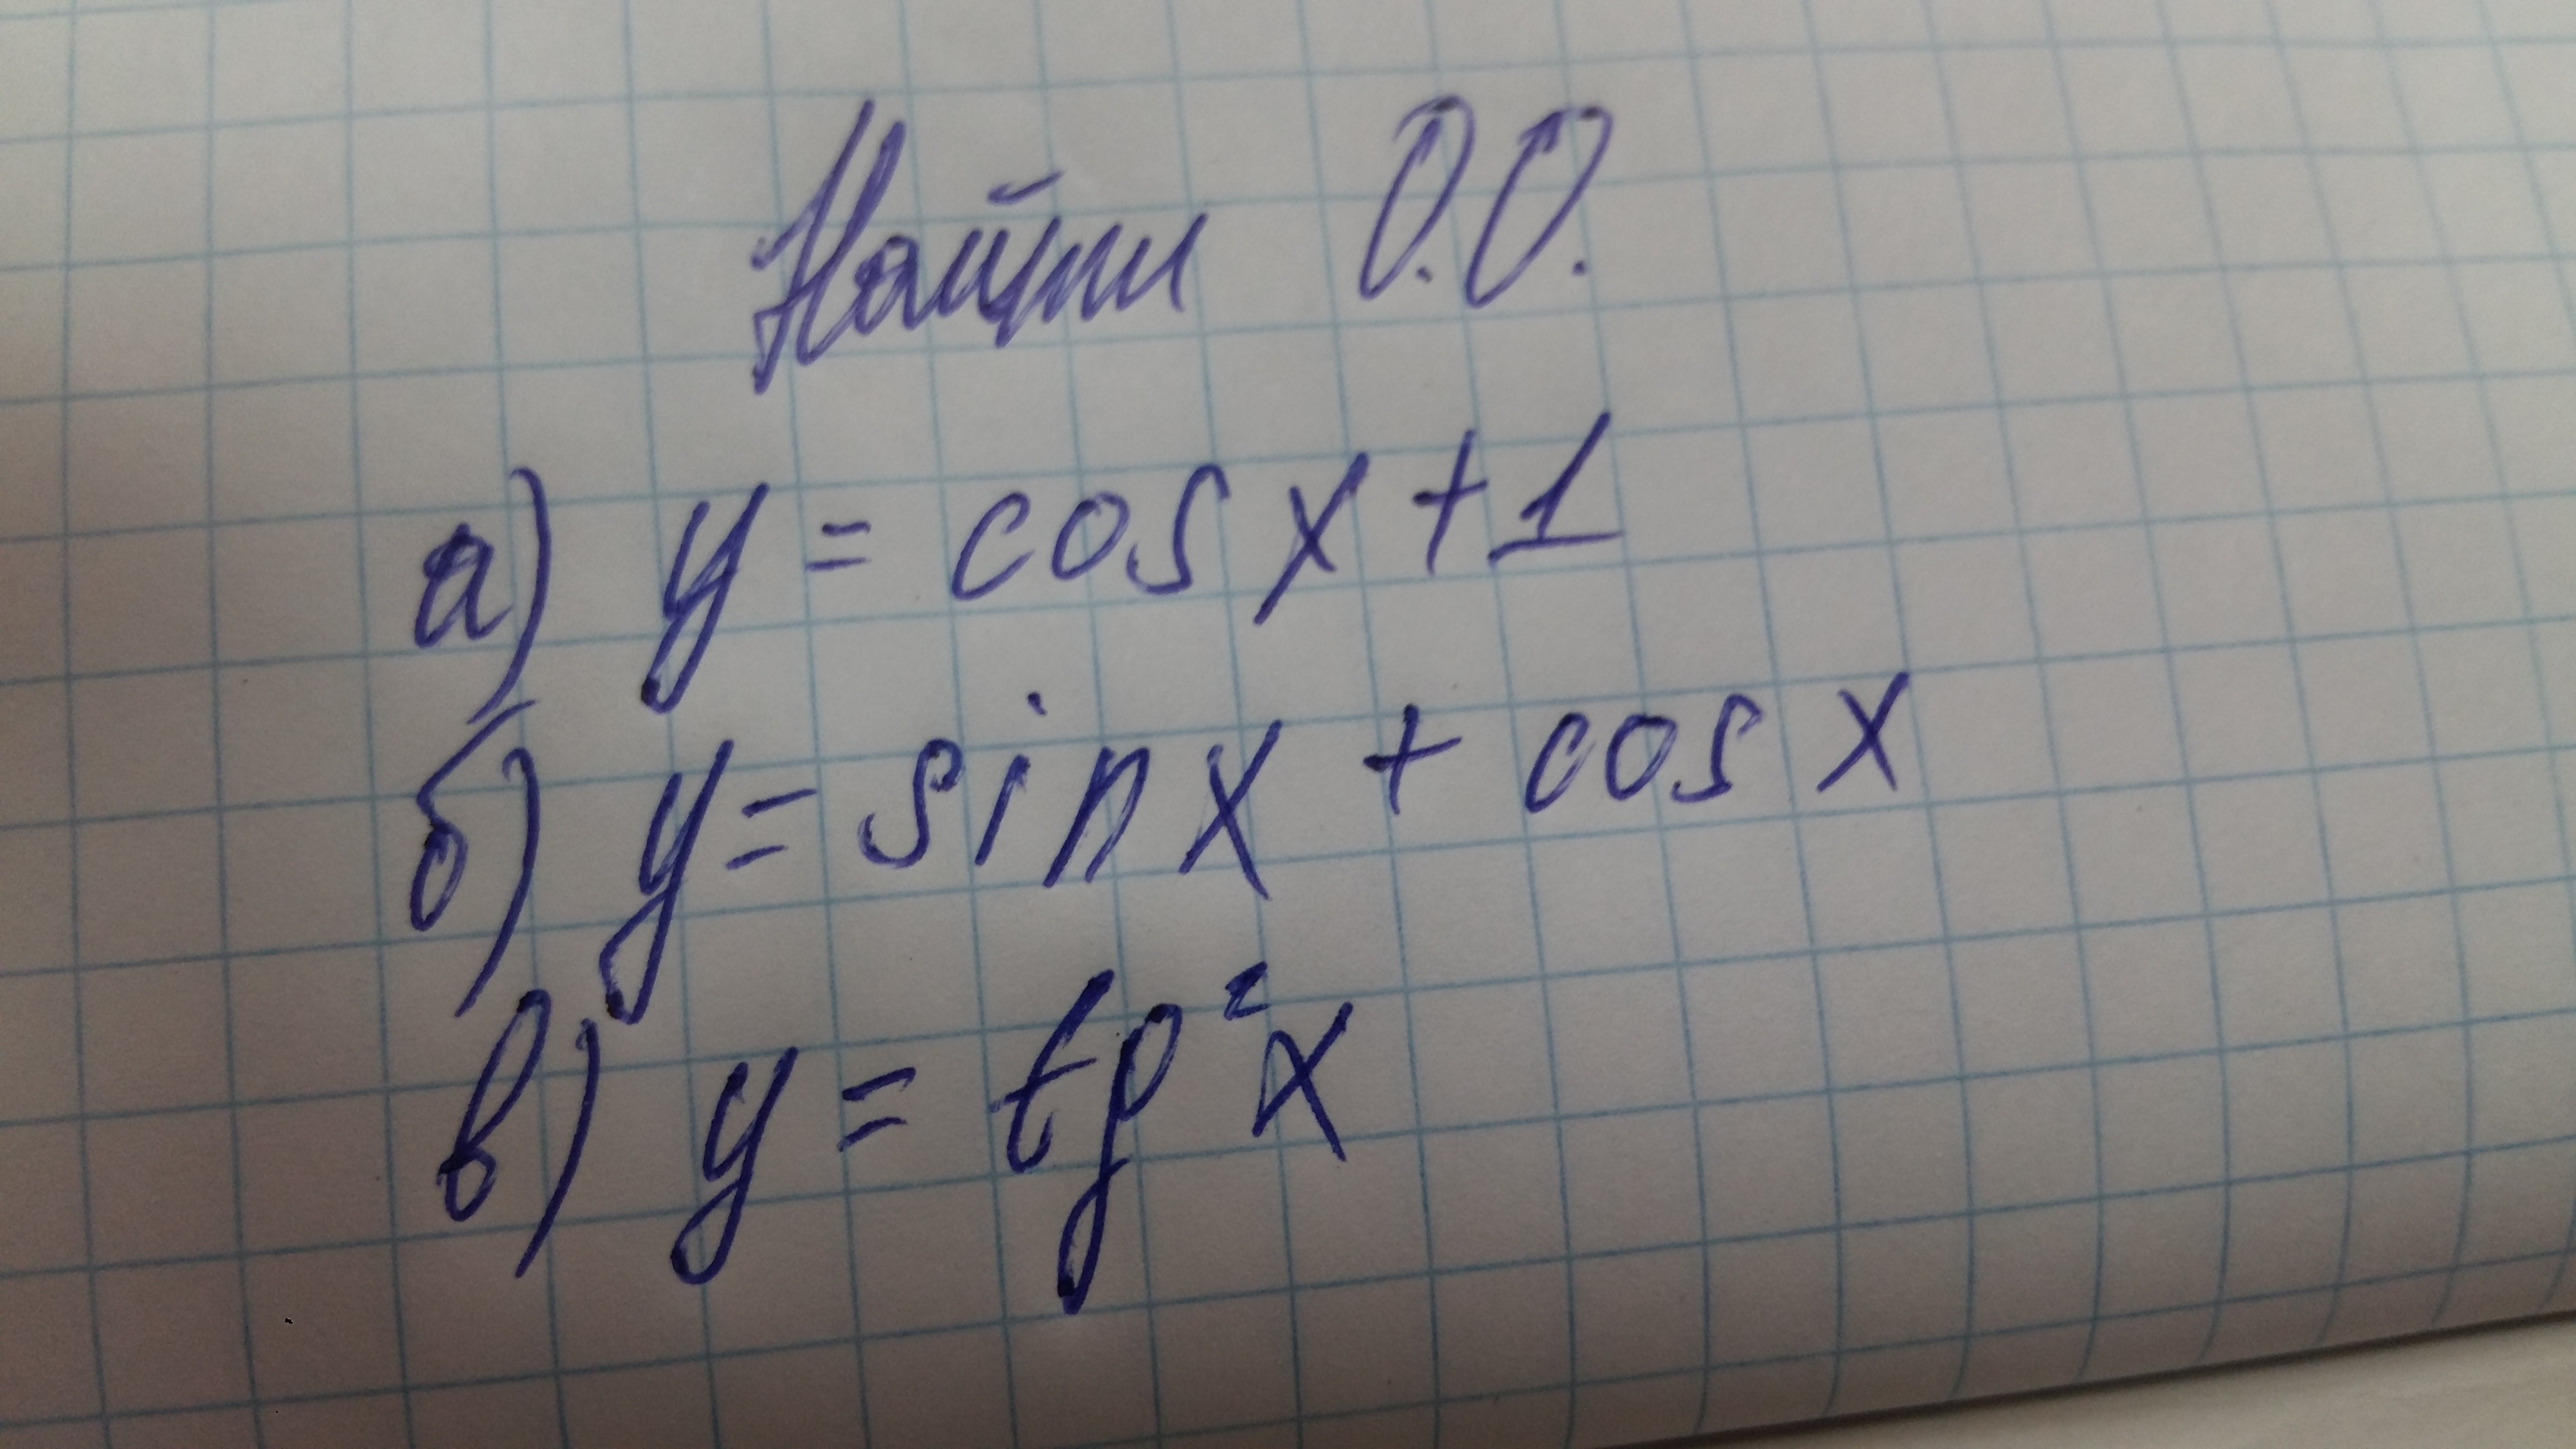 Найти О.О.
а) y = cos x + 1
б) y = sin x + cos x
в) y = tg²x